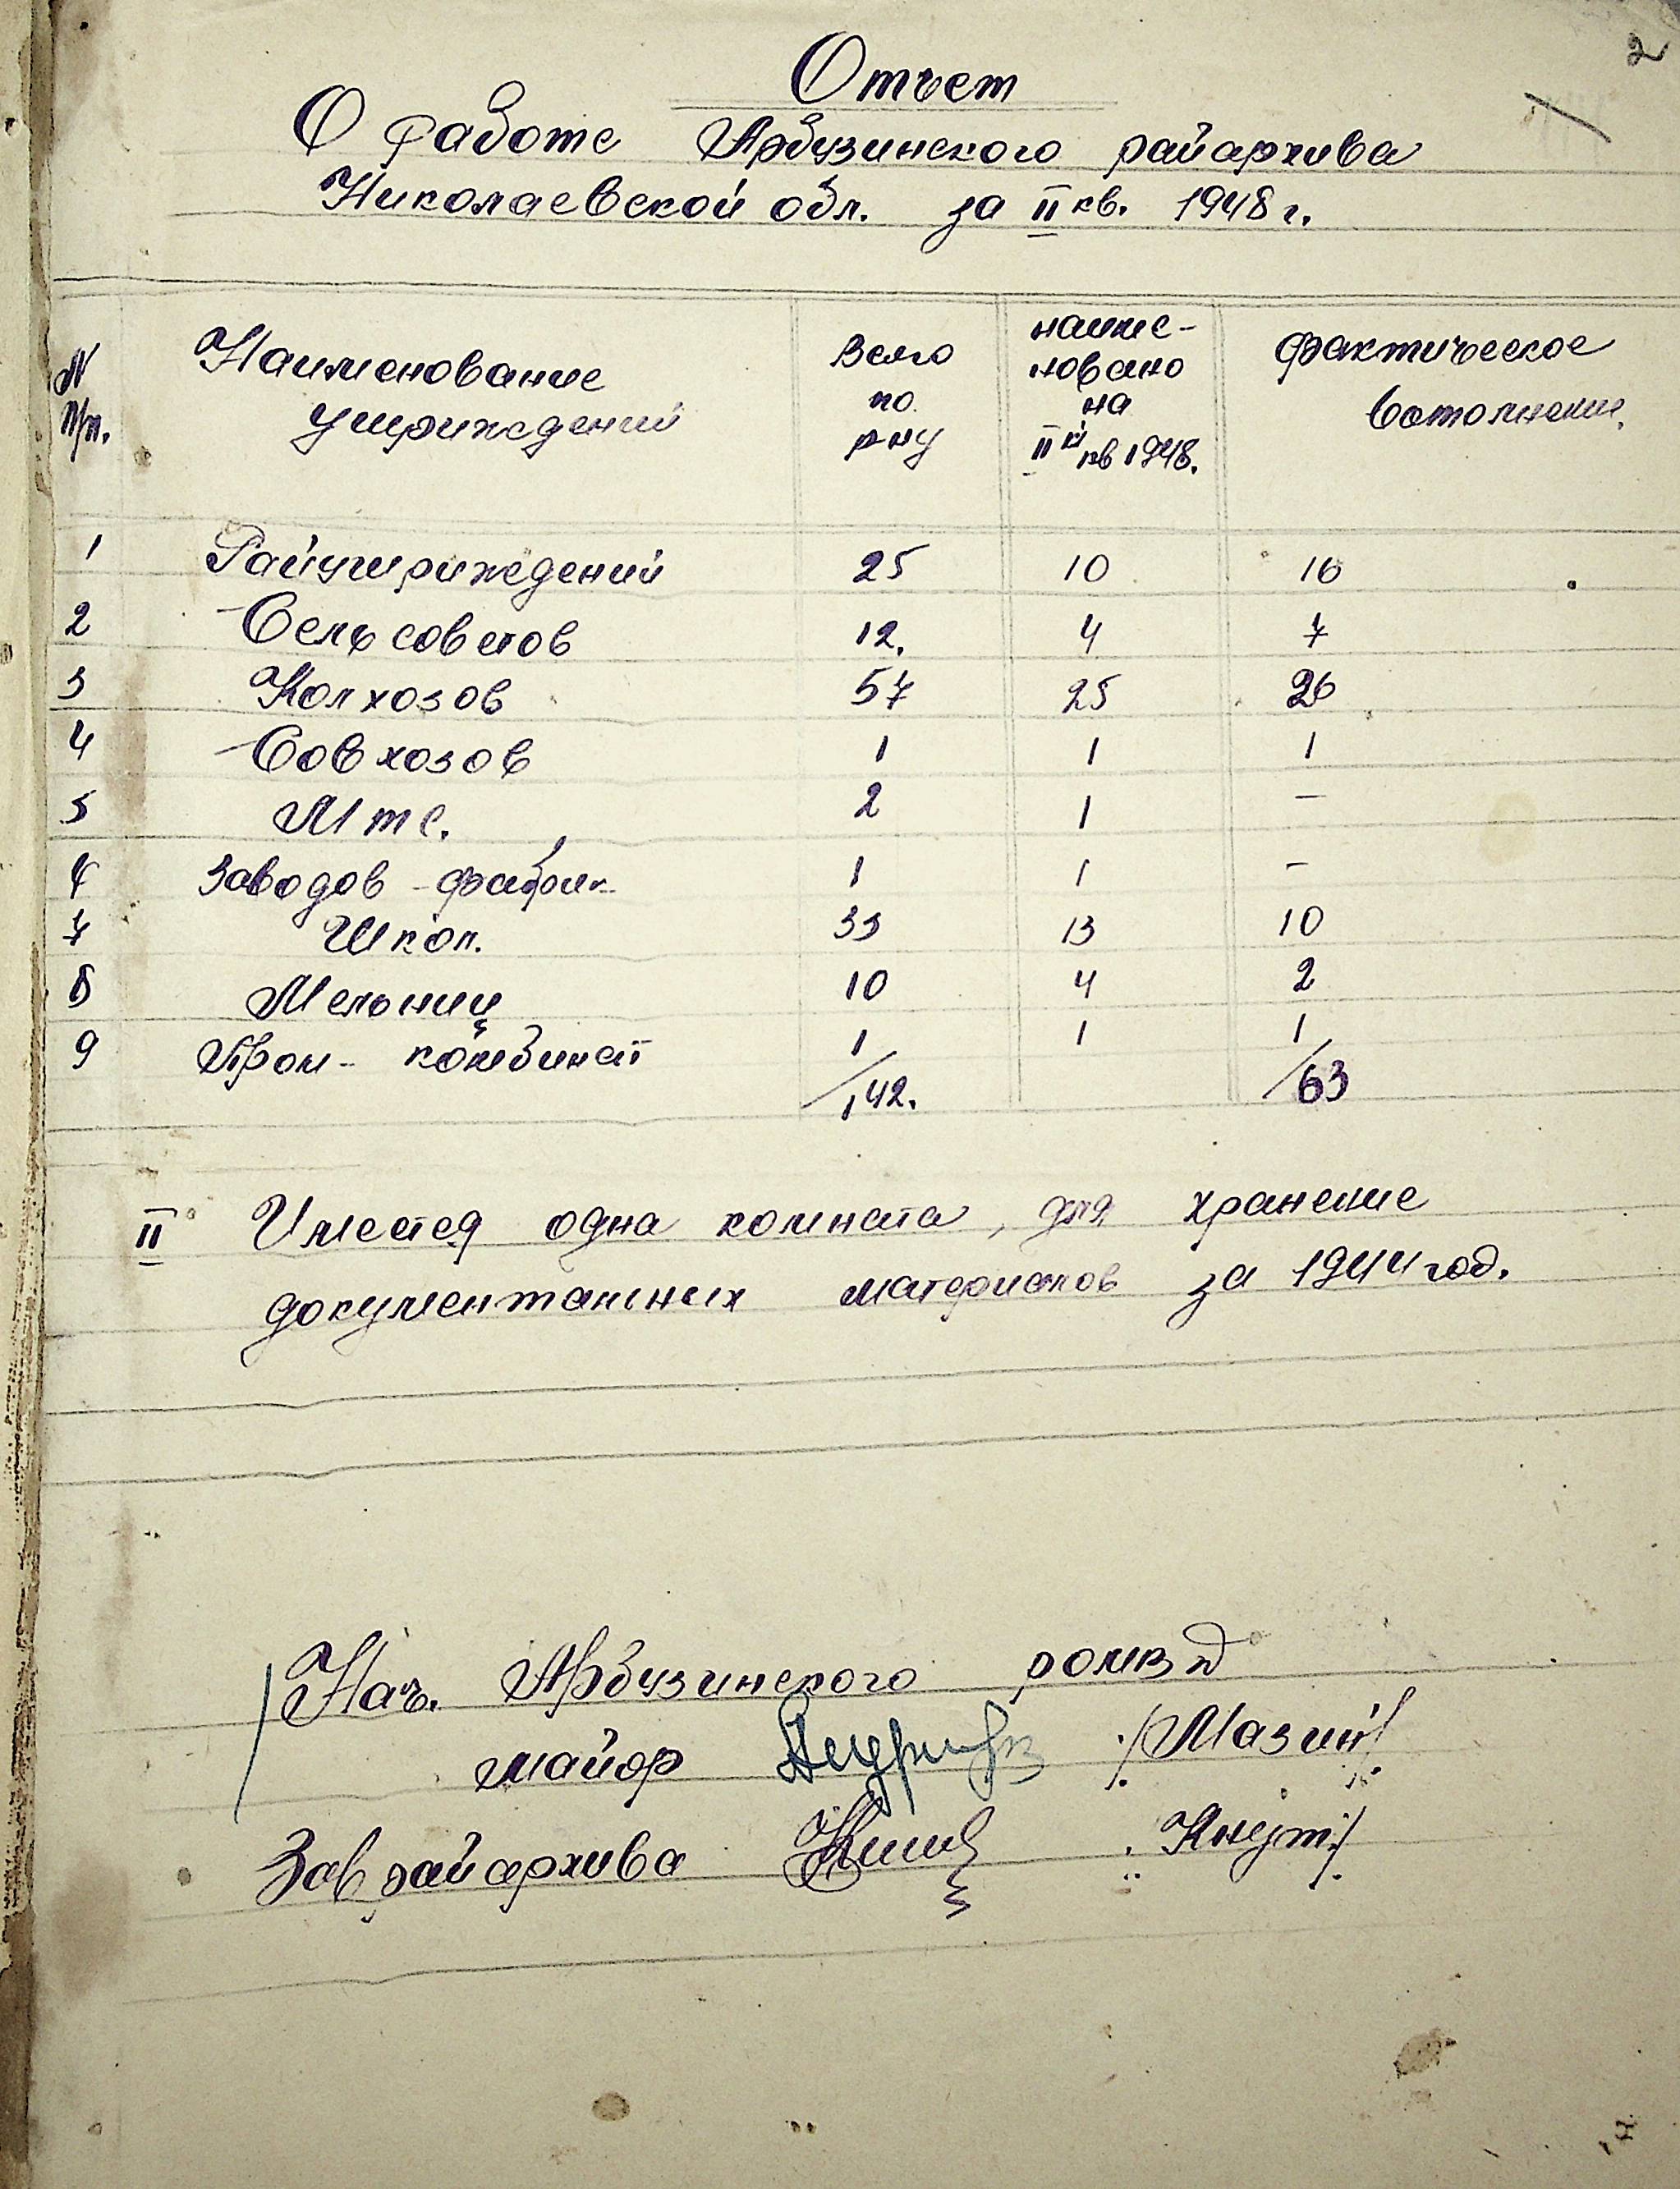 2
Отчет
О работе Арбузинского райархива
Николаевской обл. за II кв. 1948 г.
N п/п. Наименование учириждений Всего по р-ну намме-новано на II й кв 1948. Фактическое вотолнение.
1 Райучириждений 25 10 16
2 Сельсоветов 12. 4 7
3 Колхозов 57 25 26
4 Совхозов 1 1 1
5 Мтс. 2 1 –
6 Заводов-фабрик 1 1 –
7 Школ. 33 13 10
8 Мельниц 10 4 2
9 Пром-комбинат 1 1 1
142. 63
II Имеется одна комната, для хранение
документальных материалов за 1944 год.
Нач. Арбузинского ромвд
майор /Мазин/
Зав райархива Кнут/